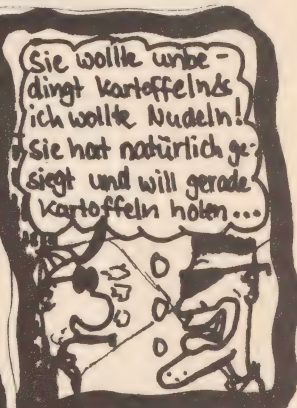 Sie wollte unbe-
dingt Kartoffeln &
ich wollte Nudeln!
Sie hat natürlich ge-
siegt und will gerade
Kartoffeln holen...